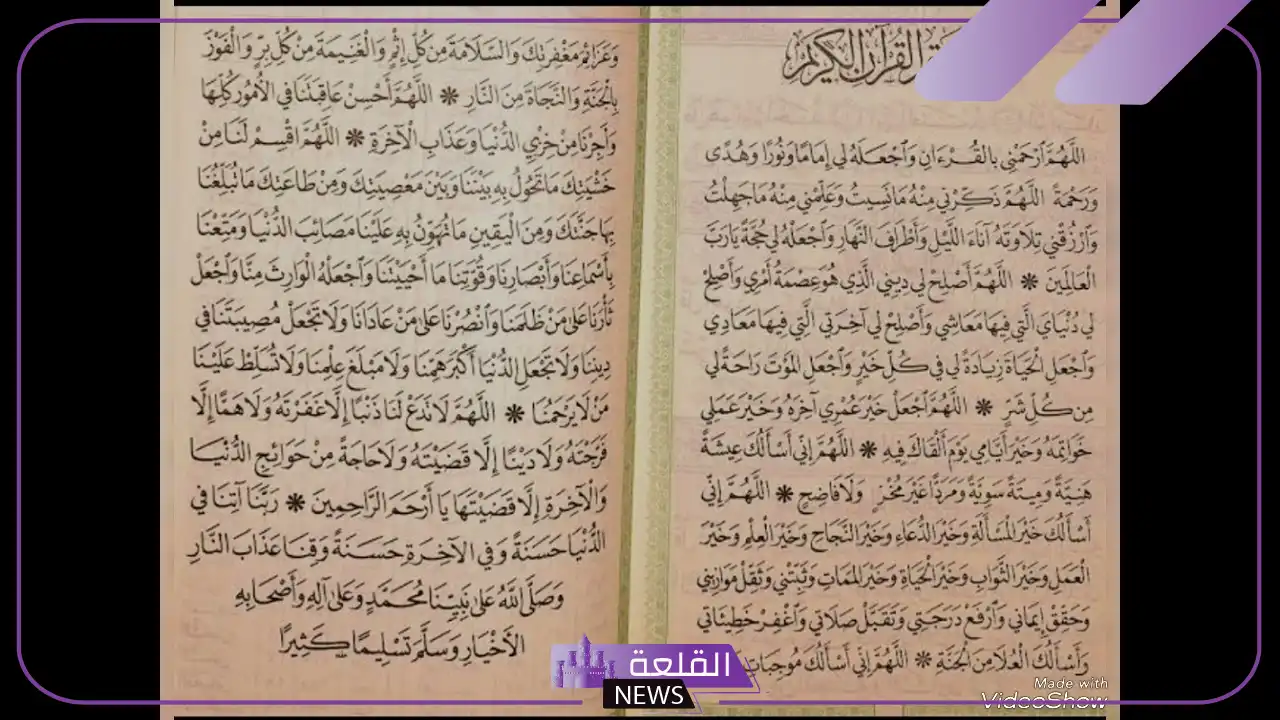 القرآن الكريم
اللَّهُمَّ ٱرْحَمْنِي بِالقُرْءَانِ وَٱجْعَلهُ لِي إِمَامًا وَنُورًا وَهُدًى
وَرَحْمَةً اللَّهُمَّ ذَكِّرْنِي مِنْهُ مَانَسِيتُ وَعَلِّمْنِي مِنْهُ مَاجَهِلْتُ
وَٱرْزُقْنِي تِلَاوَتَهُ آنَاءَ اللَّيْلِ وَأَطْرَافَ النَّهَارِ وَٱجْعَلْهُ لِي حُجَّةً يَارَبَّ
الْعَالَمِينَ ❋ اللَّهُمَّ أَصْلِحْ لِي دِينِي الَّذِي هُوَ عِصْمَةُ أَمْرِي وَأَصْلِحْ
لِي دُنْيَايَ الَّتِي فِيهَا مَعَاشِي وَأَصْلِحْ لِي آخِرَتِي الَّتِي فِيهَا مَعَادِي
وَٱجْعَلِ الْحَيَاةَ زِيَادَةً لِي فِي كُلِّ خَيْرٍ وَٱجْعَلِ المَوْتَ رَاحَةً لِي
مِن كُلِّ شَرٍّ ❋ اللَّهُمَّ ٱجْعَلْ خَيْرَ عُمْرِي آخِرَهُ وَخَيْرَ عَمَلِي
خَوَاتِمَهُ وَخَيْرَ أَيَّامِي يَوْمَ أَلْقَاكَ فِيهِ ❋ اللَّهُمَّ إِنِّي أَسْأَلُكَ عِيشَةً
هَنِيَّةً وَمِيتَةً سَوِيَّةً وَمَرَدًّا غَيْرَ مُخْزٍ وَلَافَاضِحٍ ❋ اللَّهُمَّ إِنِّي
أَسْأَلُكَ خَيْرَ المَسْأَلَةِ وَخَيْرَ الدُّعَاءِ وَخَيْرَ النَّجَاحِ وَخَيْرَ الْعِلْمِ وَخَيْرَ
الْعَمَلِ وَخَيْرَ الثَّوَابِ وَخَيْرَ الْحَيَاةِ وَخَيْرَ المَمَاتِ وَثَبِّتْنِي وَثَقِّلْ مَوَازِينِي
وَحَقِّقْ إِيمَانِي وَٱرْفَعْ دَرَجَتِي وَتَقَبَّلْ صَلَاتِي وَٱغْفِرْ خَطِيئَاتِي
وَأَسْأَلُكَ الْعُلَا مِنَ الْجَنَّةِ ❋ اللَّهُمَّ إِنِّي أَسْأَلُكَ مُوجِبَاتِ
وَعَزَائِمَ مَغْفِرَتِكَ وَالسَّلَامَةَ مِن كُلِّ إِثْمٍ وَالْغَنِيمَةَ مِنْ كُلِّ بِرٍّ وَالْفَوْزَ
بِالْجَنَّةِ وَالنَّجَاةَ مِنَ النَّارِ ❋ اللَّهُمَّ أَحْسِنْ عَاقِبَتَنَا فِي الأُمُورِ كُلِّهَا
وَأَجِرْنَا مِنْ خِزْيِ الدُّنْيَا وَعَذَابِ الْآخِرَةِ ❋ اللَّهُمَّ اقْسِمْ لَنَا مِنْ
خَشْيَتِكَ مَاتَحُولُ بِهِ بَيْنَنَا وَبَيْنَ مَعْصِيَتِكَ وَمِنْ طَاعَتِكَ مَاتُبَلِّغُنَا
بِهَا جَنَّتَكَ وَمِنَ الْيَقِينِ مَاتُهَوِّنُ بِهِ عَلَيْنَا مَصَائِبَ الدُّنْيَا وَمَتِّعْنَا
بِأَسْمَاعِنَا وَأَبْصَارِنَا وَقُوَّتِنَا مَا أَحْيَيْتَنَا وَٱجْعَلْهُ الْوَارِثَ مِنَّا وَٱجْعَلْ
ثَأْرَنَا عَلَى مَنْ ظَلَمَنَا وَٱنْصُرْنَا عَلَى مَنْ عَادَانَا وَلَا تَجْعَلْ مُصِيبَتَنَا فِي
دِينِنَا وَلَا تَجْعَلِ الدُّنْيَا أَكْبَرَ هَمِّنَا وَلَا مَبْلَغَ عِلْمِنَا وَلَا تُسَلِّطْ عَلَيْنَا
مَنْ لَا يَرْحَمُنَا ❋ اللَّهُمَّ لَا تَدَعْ لَنَا ذَنْبًا إِلَّا غَفَرْتَهُ وَلَا هَمًّا إِلَّا
فَرَّجْتَهُ وَلَا دَيْنًا إِلَّا قَضَيْتَهُ وَلَا حَاجَةً مِنْ حَوَائِجِ الدُّنْيَا
وَالْآخِرَةِ إِلَّا قَضَيْتَهَا يَا أَرْحَمَ الرَّاحِمِينَ ❋ رَبَّنَا آتِنَا فِي
الدُّنْيَا حَسَنَةً وَفِي الآخِرَةِ حَسَنَةً وَقِنَا عَذَابَ النَّارِ
وَصَلَّى اللَّهُ عَلَى نَبِيِّنَا مُحَمَّدٍ وَعَلَى آلِهِ وَأَصْحَابِهِ
الأَخْيَارِ وَسَلَّمَ تَسْلِيمًا كَثِيرًا
القلعة
NEWS
Made with
VideoShow